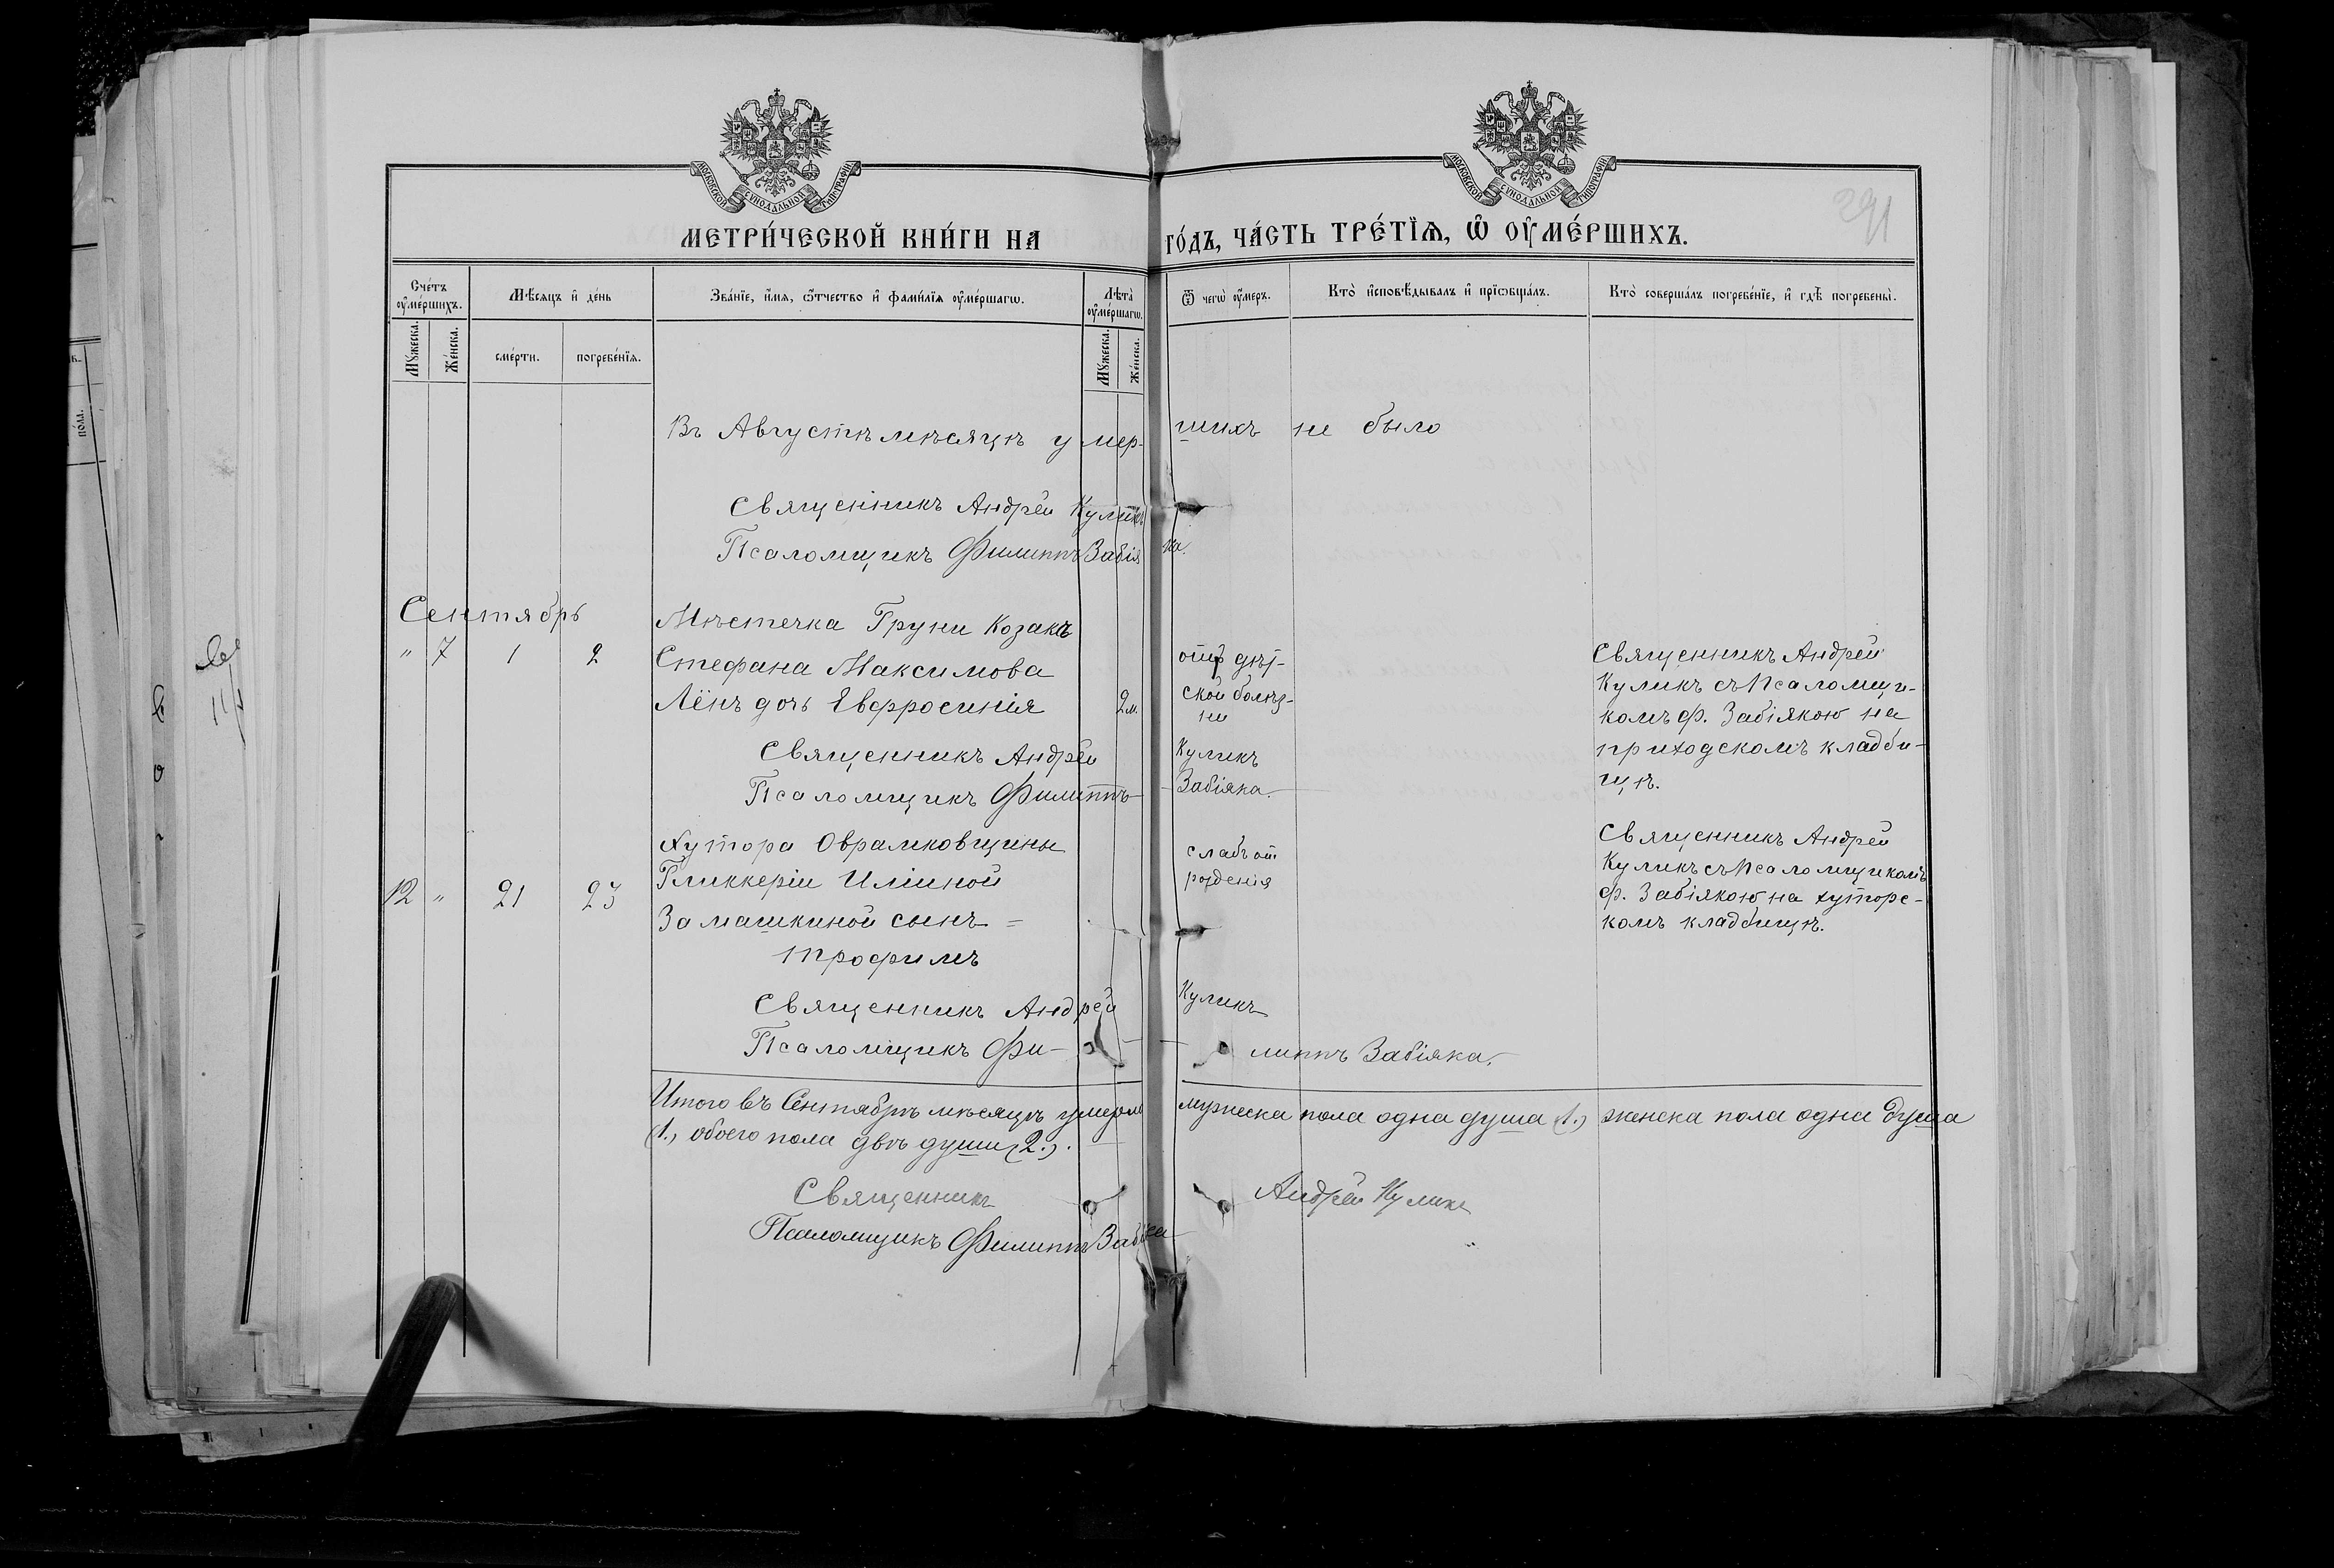 МОСКОВСКОЙ СѴНОДАЛЬНОЙ ТИПОГРАФІИ
МОСКОВСКОЙ СѴНОДАЛЬНОЙ ТИПОГРАФІИ
291
МЕТРИ́ЧЕСКОЙ КНИ́ГИ НА ГО́ДЪ, ЧА́СТЬ ТРЕ́ТІѦ, Ѡ ОУ҆МЕ́РШИХЪ.
Сче́тъ оу҆ме́ршихъ.
Мѣ́сяцъ и҆ де́нь
Зва́нїе, и҆́мя, ѻ҆́тчество и҆ фами́лїя оу҆ме́ршагѡ.
Лѣта̀ оу҆ме́ршагѡ.
Ѿ чегѡ̀ оу҆́меръ.
Кто̀ и҆сповѣ́дывалъ и҆ прїѡбща́лъ.
Кто̀ соверша́лъ погребе́нїе, и҆ гдѣ̀ погребены̀.
Мꙋ́жеска.
Же́нска.
сме́рти.
погребе́нїя.
Мꙋ́жеска.
Же́нска.
Въ Августѣ мѣсяцѣ умер- шихъ не было
Священникъ Андрей Куликъ
Псаломщикъ Филиппъ Забіяка.
Сентябрь
Мѣстечка Груни козака
" 7 1 2 Стефана Максимова
Лёнъ дочь Евфросинія 2 м.
отъ дѣт-
ской болѣз-
ни
Священникъ Андрей
Куликъ съ Псаломщи-
комъ Ф. Забіякою на
приходскомъ кладби-
щѣ.
Священникъ Андрей Куликъ
Псаломщикъ Филиппъ Забіяка.
Хутора Оврамковщины
12 " 21 23 Гликкеріи Иліиной
Замашкиной сынъ =
Трофимъ
слабъ от
рожденія
Священникъ Андрей
Куликъ съ Псаломщикомъ
Ф. Забіякою на хуторс-
комъ кладбищѣ.
Священникъ Андрей Куликъ
Псаломщикъ Фи- липпъ Забіяка.
Итого въ Сентябрѣ мѣсяцѣ умерло мужеска пола одна душа (1.) женска пола одна душа
(1.) обоего пола двѣ души (2.).
Священникъ Андрей Куликъ
Псаломщикъ Филиппъ